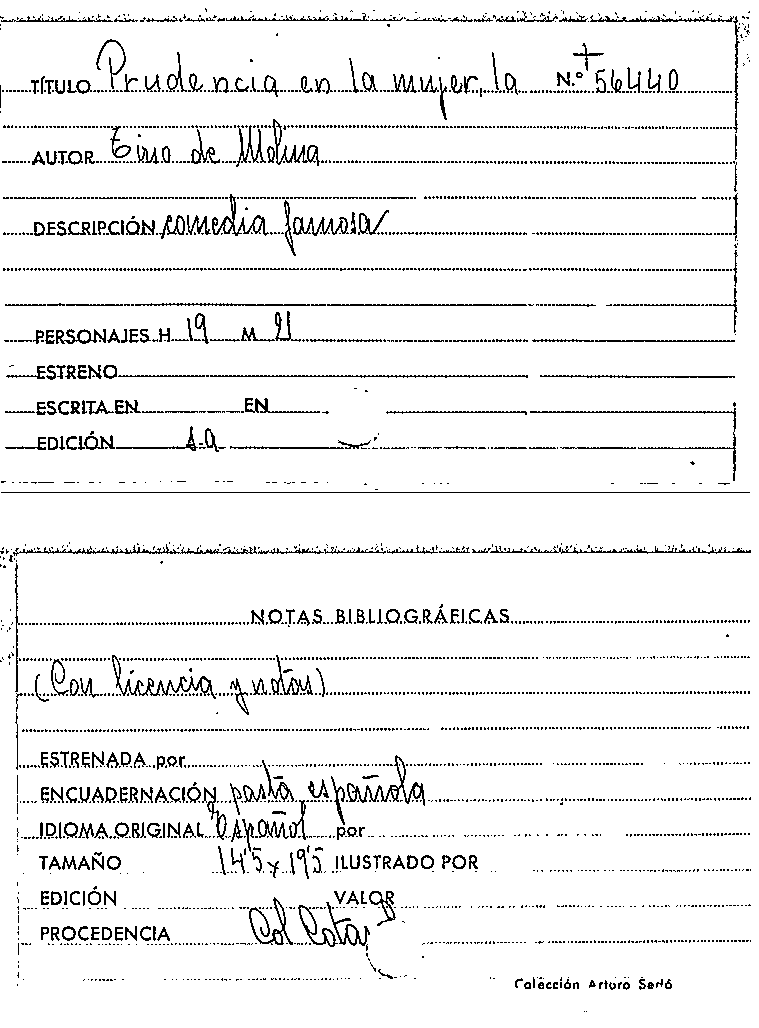 TÍTULO Prudencia en la mujer, la N.º +56440
AUTOR Tirso de Molina
DESCRIPCIÓN comedia famosa
PERSONAJES H 19 M
ESTRENO
ESCRITA EN EN
EDICIÓN s.a
NOTAS BIBLIOGRÁFICAS
(Con licencia y notas)
ESTRENADA por
ENCUADERNACIÓN pasta española
IDIOMA ORIGINAL Español por
TAMAÑO 14'5 x 19'5 ILUSTRADO POR
EDICIÓN VALOR
PROCEDENCIA Col
Colección Arturo Sedó